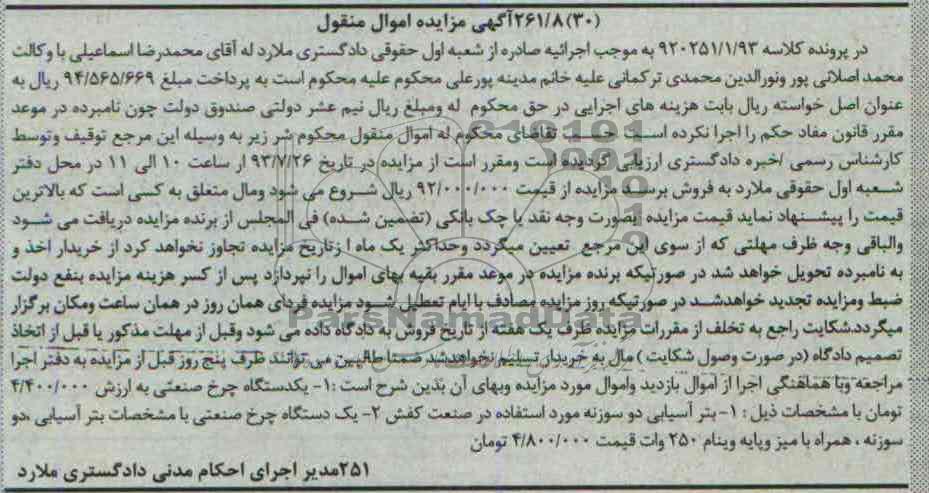 ۲۶۱/۸(۳۰)آگهی مزایده اموال منقول
در پرونده کلاسه ۹۲۰۲۵۱/۱/۹۳ به موجب اجرائیه صادره از شعبه اول حقوقی دادگستری ملارد له آقای محمدرضا اسماعیلی با وکالت
محمد اصلانی پور ونورالدین محمدی ترکمانی علیه خانم مدینه پورعلی محکوم علیه محکوم است به پرداخت مبلغ ۹۴/۵۶۵/۶۶۹ ریال به
عنوان اصل خواسته ریال بابت هزینه های اجرایی در حق محکوم له ومبلغ ریال نیم عشر دولتی صندوق دولت چون نامبرده در موعد
مقرر قانون مفاد حکم را اجرا نکرده است حسب تقاضای محکوم له اموال منقول محکوم شر زیر به وسیله این مرجع توقیف وتوسط
کارشناس رسمی /خبره دادگستری ارزیابی گردیده است ومقرر است از مزایده در تاریخ ۹۳/۷/۲۶ از ساعت ۱۰ الی ۱۱ در محل دفتر
شعبه اول حقوقی ملارد به فروش برسد مزایده از قیمت ۹۲/۰۰۰/۰۰۰ ریال شروع می شود ومال متعلق به کسی است که بالاترین
قیمت را پیشنهاد نماید قیمت مزایده بصورت وجه نقد یا چک بانکی (تضمین شده) فی المجلس از برنده مزایده دریافت می شود
والباقی وجه ظرف مهلتی که از سوی این مرجع تعیین میگردد وحداکثر یک ماه ا زتاریخ مزایده تجاوز نخواهد کرد از خریدار اخذ و
به نامبرده تحویل خواهد شد در صورتیکه برنده مزایده در موعد مقرر بقیه بهای اموال را نپردازد پس از کسر هزینه مزایده بنفع دولت
ضبط ومزایده تجدید خواهدشد در صورتیکه روز مزایده مصادف با ایام تعطیل شود مزایده فردای همان روز در همان ساعت ومکان برگزار
میگردد.شکایت راجع به تخلف از مقررات مزایده ظرف یک هفته از تاریخ فروش به دادگاه داده می شود وقبل از مهلت مذکور یا قبل از اتخاذ
تصمیم دادگاه (در صورت وصول شکایت ) مال به خریدار تسلیم نخواهدشد ضمنا طالبین می توانند ظرف پنج روز قبل از مزایده به دفتر اجرا
مراجعه وبا هماهنگی اجرا از اموال بازدید واموال مورد مزایده وبهای آن بدین شرح است :۱- یکدستگاه چرخ صنعتی به ارزش ۴/۴۰۰/۰۰۰
تومان با مشخصات ذیل : ۱- بتر آسیابی دو سوزنه مورد استفاده در صنعت کفش ۲- یک دستگاه چرخ صنعتی با مشخصات بتر آسیابی ،دو
سوزنه ، همراه با میز وپایه وینام ۲۵۰ وات قیمت ۴/۸۰۰/۰۰۰ تومان
۲۵۱مدیر اجرای احکام مدنی دادگستری ملارد
ParsNamadData